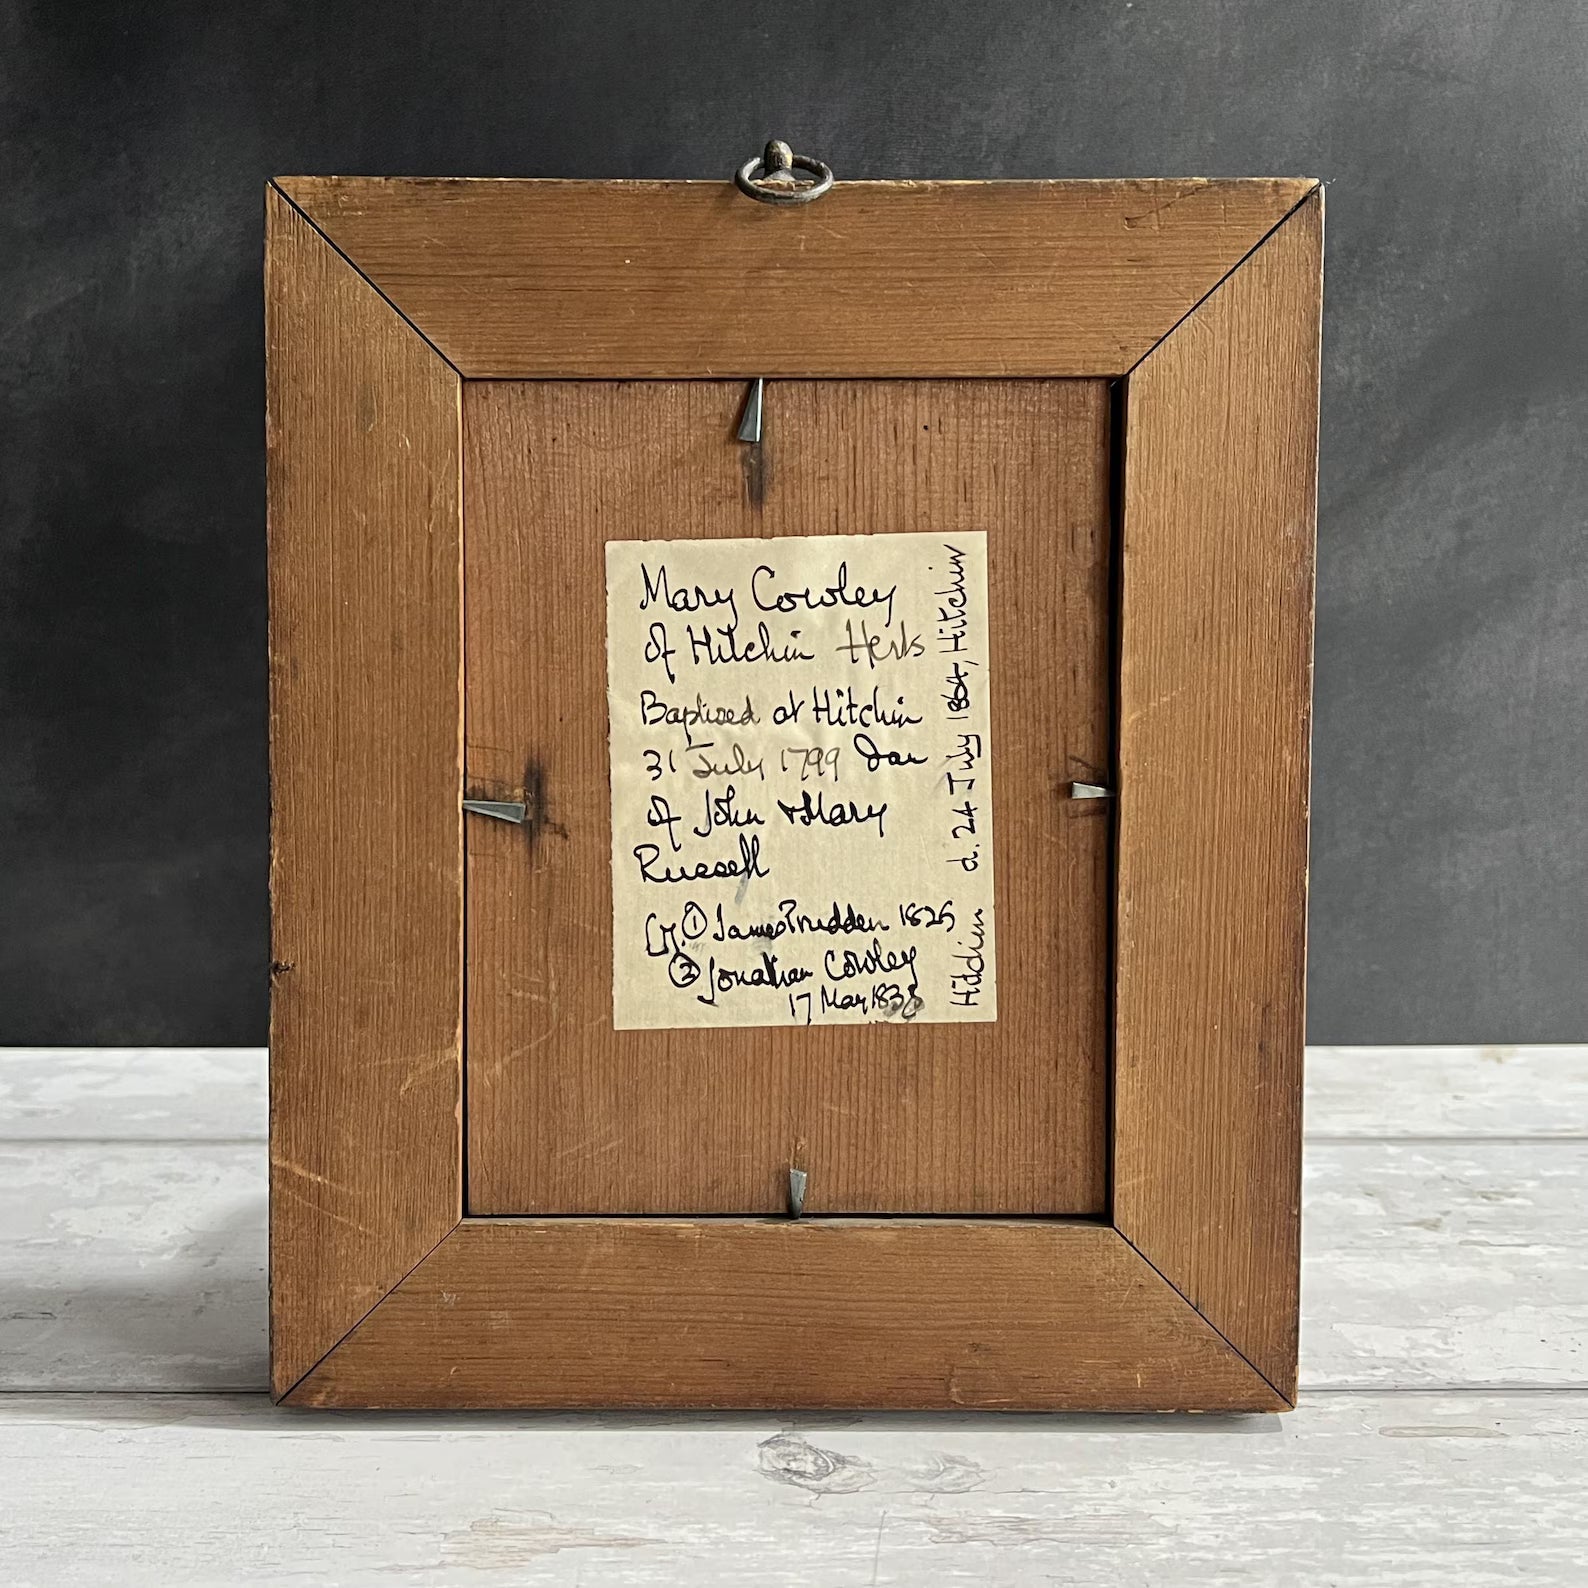 Mary Cowley
of Hitchin Herts
Baptised at Hitchin
31 July 1799 Dau
of John & Mary
Russell
M. ① James Prudden 1825
② Jonathan Cowley
17 May 1838
Hitchin d. 24 July 1864, Hitchin